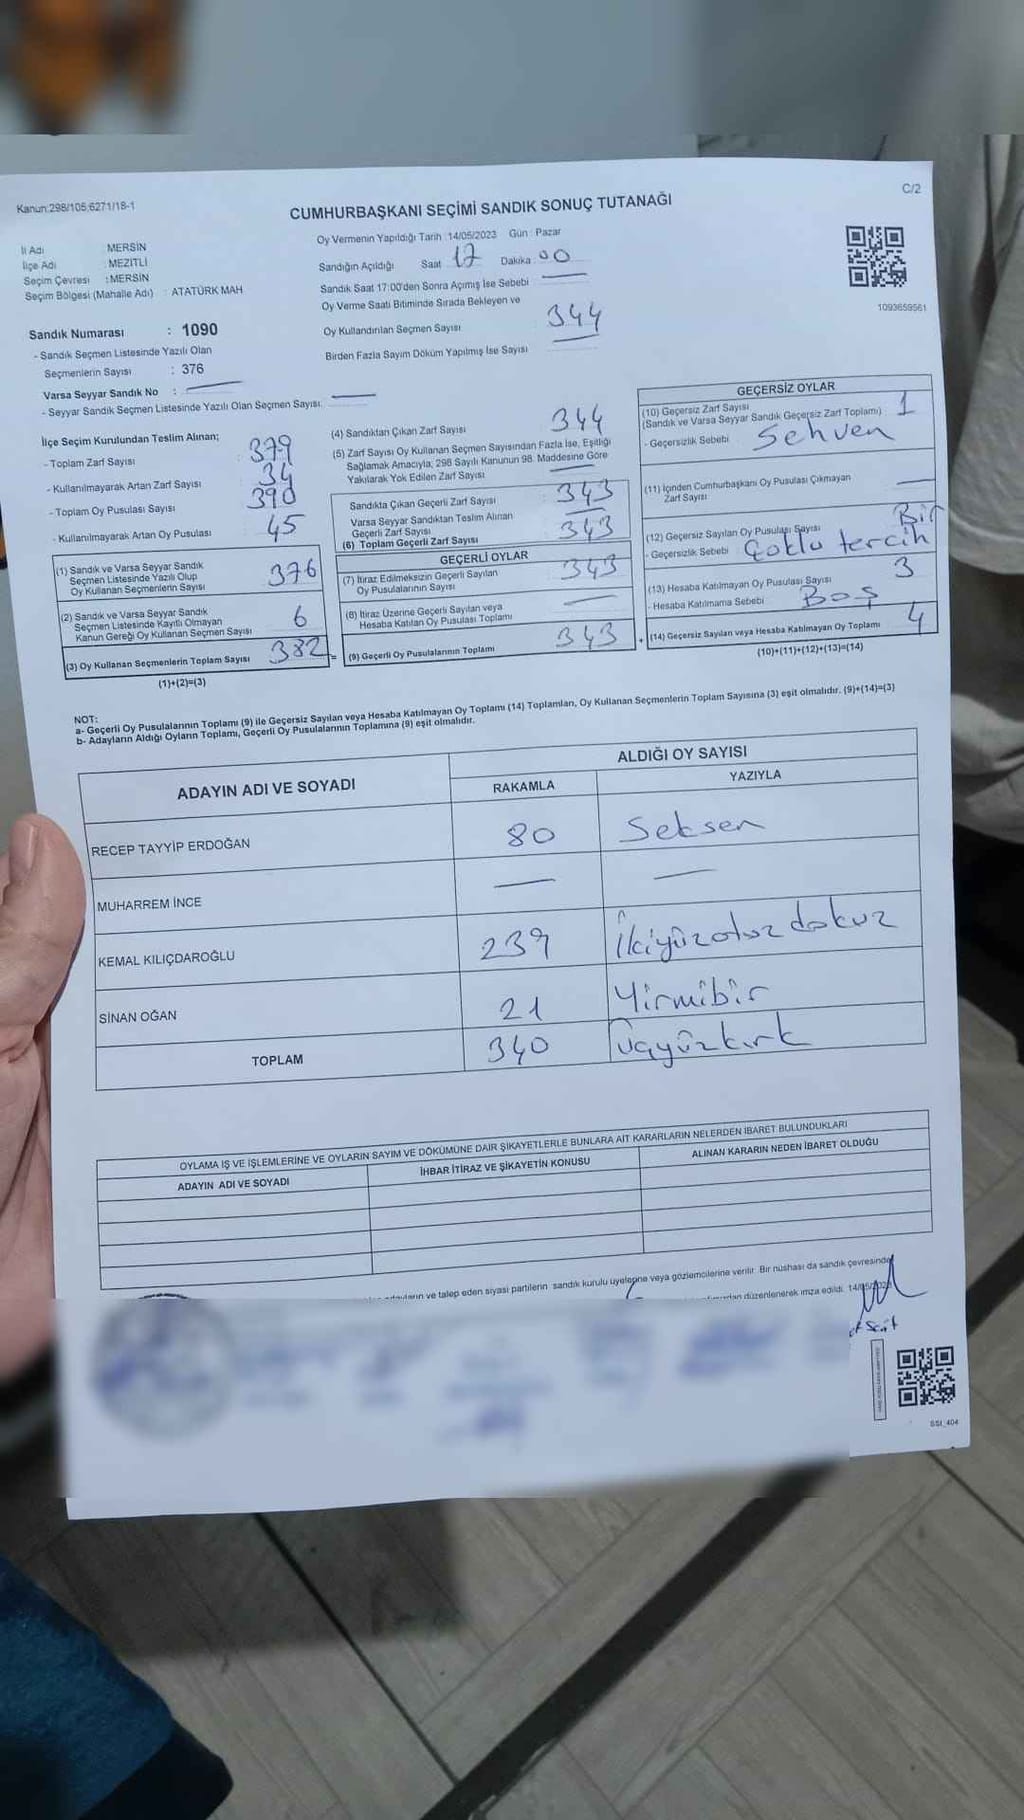 Kanun:298/105;6271/18-1
C/2
CUMHURBAŞKANI SEÇİMİ SANDIK SONUÇ TUTANAĞI
İl Adı : MERSİN
İlçe Adı : MEZİTLİ
Seçim Çevresi : MERSİN
Seçim Bölgesi (Mahalle Adı) : ATATÜRK MAH
Oy Vermenin Yapıldığı Tarih : 14/05/2023 Gün : Pazar
Sandığın Açıldığı Saat 17 Dakika : 00
Sandık Saat 17:00'den Sonra Açımış İse Sebebi
Oy Verme Saati Bitiminde Sırada Bekleyen ve
Oy Kullandırılan Seçmen Sayısı 344
Birden Fazla Sayım Döküm Yapılmış İse Sayısı
1093659561
Sandık Numarası : 1090
- Sandık Seçmen Listesinde Yazılı Olan
Seçmenlerin Sayısı : 376
Varsa Seyyar Sandık No :
- Seyyar Sandık Seçmen Listesinde Yazılı Olan Seçmen Sayısı:
İlçe Seçim Kurulundan Teslim Alınan;
- Toplam Zarf Sayısı : 379
- Kullanılmayarak Artan Zarf Sayısı : 34
- Toplam Oy Pusulası Sayısı : 390
- Kullanılmayarak Artan Oy Pusulası : 45
(1) Sandık ve Varsa Seyyar Sandık
Seçmen Listesinde Yazılı Olup
Oy Kullanan Seçmenlerin Sayısı 376
(2) Sandık ve Varsa Seyyar Sandık
Seçmen Listesinde Kayıtlı Olmayan
Kanun Gereği Oy Kullanan Seçmen Sayısı 6
(3) Oy Kullanan Seçmenlerin Toplam Sayısı 382
(1)+(2)=(3)
(4) Sandıktan Çıkan Zarf Sayısı : 344
(5) Zarf Sayısı Oy Kullanan Seçmen Sayısından Fazla İse, Eşitliği
Sağlamak Amacıyla; 298 Sayılı Kanunun 98. Maddesine Göre
Yakılarak Yok Edilen Zarf Sayısı
Sandıkta Çıkan Geçerli Zarf Sayısı : 343
Varsa Seyyar Sandıktan Teslim Alınan
Geçerli Zarf Sayısı
(6) Toplam Geçerli Zarf Sayısı 343
GEÇERLİ OYLAR
(7) İtiraz Edilmeksizin Geçerli Sayılan
Oy Pusulalarının Sayısı 343
(8) İtiraz Üzerine Geçerli Sayılan veya
Hesaba Katılan Oy Pusulası Toplamı
= (9) Geçerli Oy Pusulalarının Toplamı 343
GEÇERSİZ OYLAR
(10) Geçersiz Zarf Sayısı
(Sandık ve Varsa Seyyar Sandık Geçersiz Zarf Toplamı) 1
- Geçersizlik Sebebi Sehven
(11) İçinden Cumhurbaşkanı Oy Pusulası Çıkmayan
Zarf Sayısı
(12) Geçersiz Sayılan Oy Pusulası Sayısı Bir
- Geçersizlik Sebebi Çoklu tercih
(13) Hesaba Katılmayan Oy Pusulası Sayısı 3
- Hesaba Katılmama Sebebi Boş
+ (14) Geçersiz Sayılan veya Hesaba Katılmayan Oy Toplamı 4
(10)+(11)+(12)+(13)=(14)
NOT:
a- Geçerli Oy Pusulalarının Toplamı (9) ile Geçersiz Sayılan veya Hesaba Katılmayan Oy Toplamı (14) Toplamları, Oy Kullanan Seçmenlerin Toplam Sayısına (3) eşit olmalıdır. (9)+(14)=(3)
b- Adayların Aldığı Oyların Toplamı, Geçerli Oy Pusulalarının Toplamına (9) eşit olmalıdır.
ADAYIN ADI VE SOYADI
ALDIĞI OY SAYISI
RAKAMLA YAZIYLA
RECEP TAYYİP ERDOĞAN 80 Seksen
MUHARREM İNCE
KEMAL KILIÇDAROĞLU 239 İkiyüzotuzdokuz
SİNAN OĞAN 21 Yirmibir
TOPLAM 340 Üçyüzkırk
OYLAMA İŞ VE İŞLEMLERİNE VE OYLARIN SAYIM VE DÖKÜMÜNE DAİR ŞİKAYETLERLE BUNLARA AİT KARARLARIN NELERDEN İBARET BULUNDUKLARI
ADAYIN ADI VE SOYADI İHBAR İTİRAZ VE ŞİKAYETİN KONUSU ALINAN KARARIN NEDEN İBARET OLDUĞU
ve talep eden siyasi partilerin sandık kurulu üyelerine veya gözlemcilerine verilir. Bir nüshası da sandık çevresinde
düzenlenerek imza edildi. 14/05/2023
SSI_404